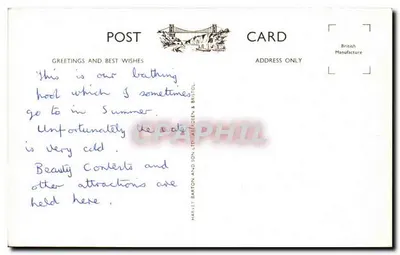 POST CARD
GREETINGS AND BEST WISHES
ADDRESS ONLY
British
Manufacture
This is our bathing
pool which I sometimes
go to in Summer.
Unfortunately the
is very cold.
Beauty Contests and
other attractions are
held here.
HARVEY BARTON AND SON LTD
BRISTOL
CPAPHIL